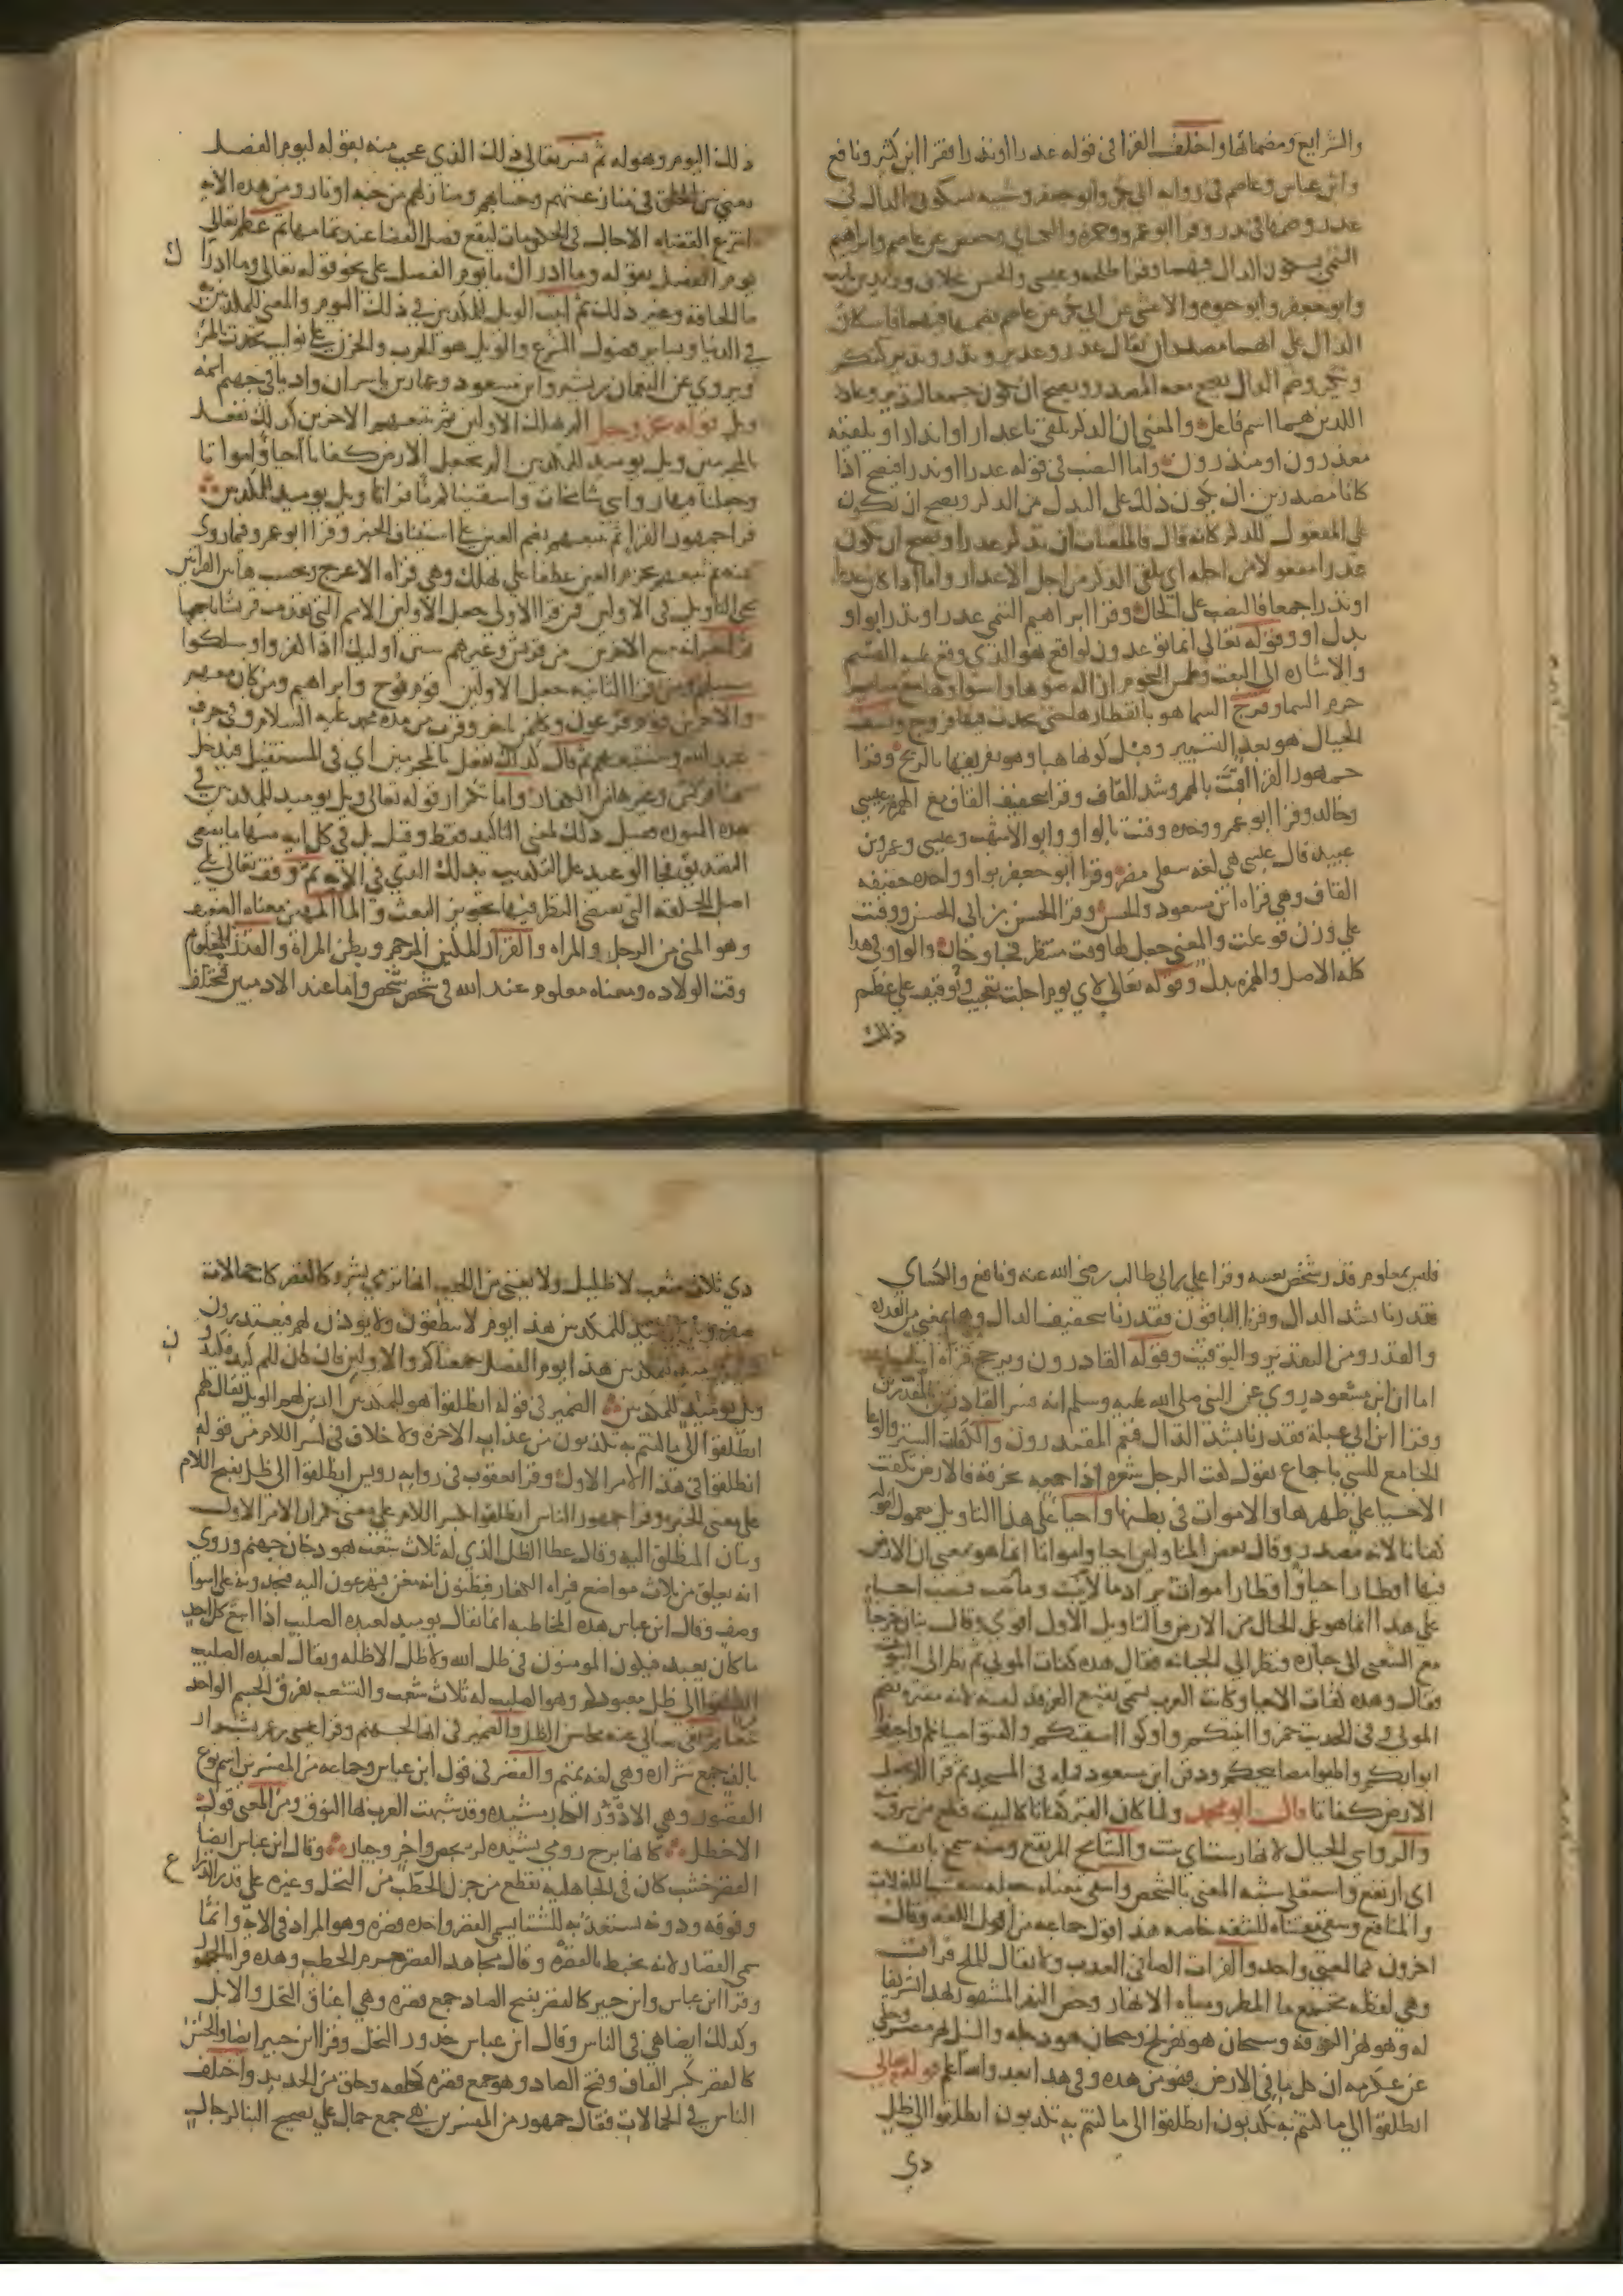 والشرايع ومضماتها واختلف القرا في قوله عدرا او نذرا فقرا ابن كثير ونافع
وابن عباس وعاصم في رواية ابي بكر وابو جعفر وشيبه بسكون الدال في
عدر وضمها في ندر وقرا ابو عمرو وحمزه والكساي وحفص عن عاصم وابراهيم
التيمي بسكون الدال فيهما وقرا طلحه وعيسى والحسن بخلاف وزيد بن ثابت
وابو جعفر وابو حيوه والاعشى عن ابي بكر عن عاصم بضمها فيهما فاسكان
الدال على انهما مصدران يقال عدر وعدير وندر وندير كنكر
ونكير وضم الدال يصح معه المصدر ويصح ان يكون جمعا لندير وعادر
اللذين هما اسم فاعل والمعنى ان الذكر يلقى باعدار او انذار او يلقيه
معذرون او منذرون واما النصب في قوله عدرا او ندرا فيصح اذا
كانا مصدرين ان يكون ذلك على البدل من الدكر ويصح ان يكون
على المفعول للدكر كانه قال فالملقيات ان تدكر عدرا ويصح ان يكون
عدرا مفعولا من اجله اي يلقى الدكر من اجل الاعدار واما اذا كان عدرا
او ندرا جمعا فالنصب على الحال وقرا ابراهيم التيمي عدرا وندرا بواو
بدل او وقوله تعالى انما توعدون لواقع هو الذي وقع عليه القسم
والاشاره الى البعث وطمس النجوم ازاله ضوها واستواوها مع ساير
جرم السما وفرج السما هو بانفطارها حتى يحدث فيها فروج ونسف
الجبال هو بعد التسيير وقبل كونها هبا وهو تفريقها بالريح وقرا
جمهور القرا اقتت بالهمز وشد القاف وقرا بتخفيف القاف مع الهمز عيسى
وخالد وقرا ابو عمرو وحده وقتت بالواو وابو الاشهب وعيسى وعمرو بن
عبيد قال عيسى هي لغه سفلى مضر وقرا ابو جعفر بواو واحده خفيفه
القاف وهي قراه ابن مسعود والحسن وقرا الحسن بن ابي الحسن ووقتت
على وزن فوعلت والمعنى جعل لها وقت منتظر فجا وحان والواو في هدا
كله الاصل والهمزه بدل وقوله تعالى لاي يوم اجلت تعجيب وتوقيف على عظم
ذلك
ذلك اليوم وهوله ثم فسر تعالى ذلك الذي عجب منه بقوله ليوم الفصل
يعني بين الخلق في منازعتهم وحسابهم ومنازلهم من جنه او نار ومن هده الايه
انتزع القضاه الاجال في الحكومات ليقع فصل القضا عند تمامها ثم عظم تعالى
يوم الفصل بقوله وما ادراك ما يوم الفصل على نحو قوله تعالى وما ادراك
ما الحاقه وغير ذلك ثم اثبت الويل للمكدبين في ذلك اليوم والمعنى للمكدبين
في الدنيا وبساير فصول الشرع والويل هو الحرب والحزن على نوايب تحدث بالمر
ويروى عن النعمان بن بشير وابن مسعود وعمار بن ياسر ان واديا في جهنم اسمه
ويل قوله عز وجل الم نهلك الاولين ثم نتبعهم الاخرين كدلك نفعل
بالمجرمين ويل يوميد للمكدبين الم نجعل الارض كفاتا احيا وامواتا
وجعلنا فيها رواسي شامخات واسقيناكم ما فراتا ويل يوميد للمكدبين
قرا جمهور القرا ثم نتبعهم بضم العين على استيناف الخبر وقرا ابو عمرو فيما روي
عنه ثم نتبعهم بجزم العين عطفا على نهلك وهي قراه الاعرج وبحسب هاتين القراتين
يجي التاويل في الاولين فمن قرا الاولى جعل الاولين الامم التي تقدمت قريشا باجمعها
ثم اخبر انه يتبع الاخرين من قريش وغيرهم سنن اوليك اذا كفروا وسلكوا
سبيلهم ومن قرا الثانيه جعل الاولين قوم نوح وابراهيم ومن كان معهم
والاخرين قوم فرعون وكل من تاخر وقرب من مده محمد عليه السلام وفي حرف
عبد الله وسنتبعهم ثم قال كدلك نفعل بالمجرمين اي في المستقبل فيدخل
هنا قريش وغيرها من الكفار واما تكرار قوله تعالى ويل يوميد للمكدبين في
هده السوره فقيل ذلك لمعنى التاكيد فقط وقيل بل في كل ايه منها ما يقتضي
التصديق فجا الوعيد على التكديب بذلك الذي في الايه ثم وقف تعالى على
اصل الخلقه التي يقتضي النظر فيها تجويز البعث والما المهين معناه الضعيف
وهو المني من الرجل والمراه والقرار المكين الرحم وبطن المراه والقدر المعلوم
وقت الولاده ومعناه معلوم عند الله في شخص شخص واما عند الادميين فمختلف
فليس بمعلوم قدر شخص بعينه وقرا علي بن ابي طالب رضي الله عنه ونافع والكساي
فقدرنا بشد الدال وقرا الباقون فقدرنا بتخفيف الدال وهما بمعنى من القدره
والقدر ومن التقدير والتوقيت وقوله القادرون ويرجح قراه
اما ان ابن مسعود روي عن النبي صلى الله عليه وسلم انه فسر القادرين بالمقدرين
وقرا ابن ابي عبله فقدرنا بشد الدال فنعم المقتدرون والكفات الستر والوعا
الجامع للشي باجماع يقول كفت الرجل شعره اذا جمعه بخرقه فالارض تكفت
الاحيا على ظهرها والاموات في بطنها واحيا على هذا التاويل معمول لقوله
كفاتا لانه مصدر وقال بعض المتاولين احيا وامواتا انما هو بمعنى ان الارض
فيها اقطار احيا واقطار اموات يراد ما لا ينبت وما ينبت فنصب احيا
على هدا انما هو على الحال من الارض والتاويل الاول اقوى وقال بنان خرجنا
مع الشعبي الى جنازه فنظر الى الجبانه فقال هده كفات الموتى ثم نظر الى البيوت
فقال وهده كفات الاحيا وكانت العرب تسمي بقيع الغرقد كفته لانه مقبره يضم
الموتى وفي الحديث خمروا انيتكم واوكوا اسقيتكم واكفتوا صبيانكم واجيفوا
ابوابكم واطفوا مصابيحكم ودفن ابن مسعود قمله في المسجد ثم قرا الم نجعل
الارض كفاتا قال ابو محمد ولما كان القبر كفاتا كالبيت قطع من سرق
والرواسي الجبال لانها رست اي ثبتت والشامخ المرتفع ومنه شمخ بانفه
اي ارتفع واستعلى شبه المعنى بالشخص واسقى معناه جعله سقيا للغلات
والمنافع وسقى معناه للشفه خاصه هدا قول جماعه من اهل اللغه وقال
اخرون هما لمعنى واحد والفرات الصافي العدب ولا يقال للملح فرات
وهي لفظه تجمع ما المطر ومياه الانهار وخص النهر المشهور بهدا تشريفا
له وهو نهر الكوفه وسيحان هو نهر بلخ وجيحان هو دجله والنيل نهر مصر وحكي
عن عكرمه ان كل ما في الارض فهو من هده وفي هدا بعد والله اعلم قوله تعالى
انطلقوا الى ما كنتم به تكدبون انطلقوا الى ما كنتم به تكدبون انطلقوا الى ظل
دي
دي ثلاث شعب لا ظليل ولا يغني من اللهب انها ترمي بشرر كالقصر كانه جمالات
صفر ويل يوميد للمكدبين هدا يوم لا ينطقون ولا يودن لهم فيعتدرون
ويل يوميد للمكدبين هدا يوم الفصل جمعناكم والاولين فان كان لكم كيد فكيدون
ويل يوميد للمكدبين الضمير في قوله انطلقوا هو للمكدبين الدين لهم الويل يقال لهم
انطلقوا الى ما كنتم به تكدبون من عذاب الاخرة ولا خلاف في كسر اللام من قوله
انطلقوا في هدا الامر الاول وقرا يعقوب في روايه رويس انطلقوا الى ظل بفتح اللام
على معنى الخبر وقرا جمهور الناس انطلقوا بكسر اللام على معنى تكرار الامر الاول
وبيان المنطلق اليه وقال عطا الظل الذي له ثلاث شعب هو دخان جهنم وروي
انه يعلو من ثلاث مواضع فيراه الكفار فيظنون انه مغن فيهرعون اليه فيجدونه على اسوا
وصف وقال ابن عباس هده المخاطبه انما تقال يوميد لعبده الصليب اذا اتبع كل احد
ما كان يعبد فيكون المومنون في ظل الله ولا ظل الا ظله ويقال لعبده الصليب
انطلقوا الى ظل معبودكم وهو الصليب له ثلاث شعب والتشعب تفرق الجسم الواحد
فرقا ثم نفى تعالى عنه محاسن الظل والضمير في انها لجهنم وقرا عيسى بن عمر بشرار
بالف جمع شراره وهي لغه تميم والقصر في قول ابن عباس وجماعه من المفسرين اسم نوع
القصور وهي الادور الكبار مشيده وقد شبهت العرب بها النوق ومن المعنى قول
الاخطل كانها برج رومي يشيده لز بجص واجر وجيار وقال ابن عباس ايضا
القصر خشب كان في الجاهليه يقطع من جزل الحطب من النخل وغيره على قدر الذراع
وفوقه ودونه يستعد به للشتا يسمى القصر واحده قصره وهو المراد في الايه وانما
سمي القصار لانه يخبط بالقصره وقال مجاهد القصر حزم الحطب وهده قراه الجمهور
وقرا ابن عباس وابن جبير كالقصر بفتح الصاد جمع قصره وهي اعناق النخل والابل
وكدلك ايضا هي في الناس وقال ابن عباس جدور النخل وقرا ابن جبير ايضا والحسن
كالقصر بكسر القاف وفتح الصاد وهو جمع قصره كحلقه وحلق من الحديد واختلف
الناس في الجمالات فقال جمهور من المفسرين هي جمع جمال على تصحيح البنا كرجال